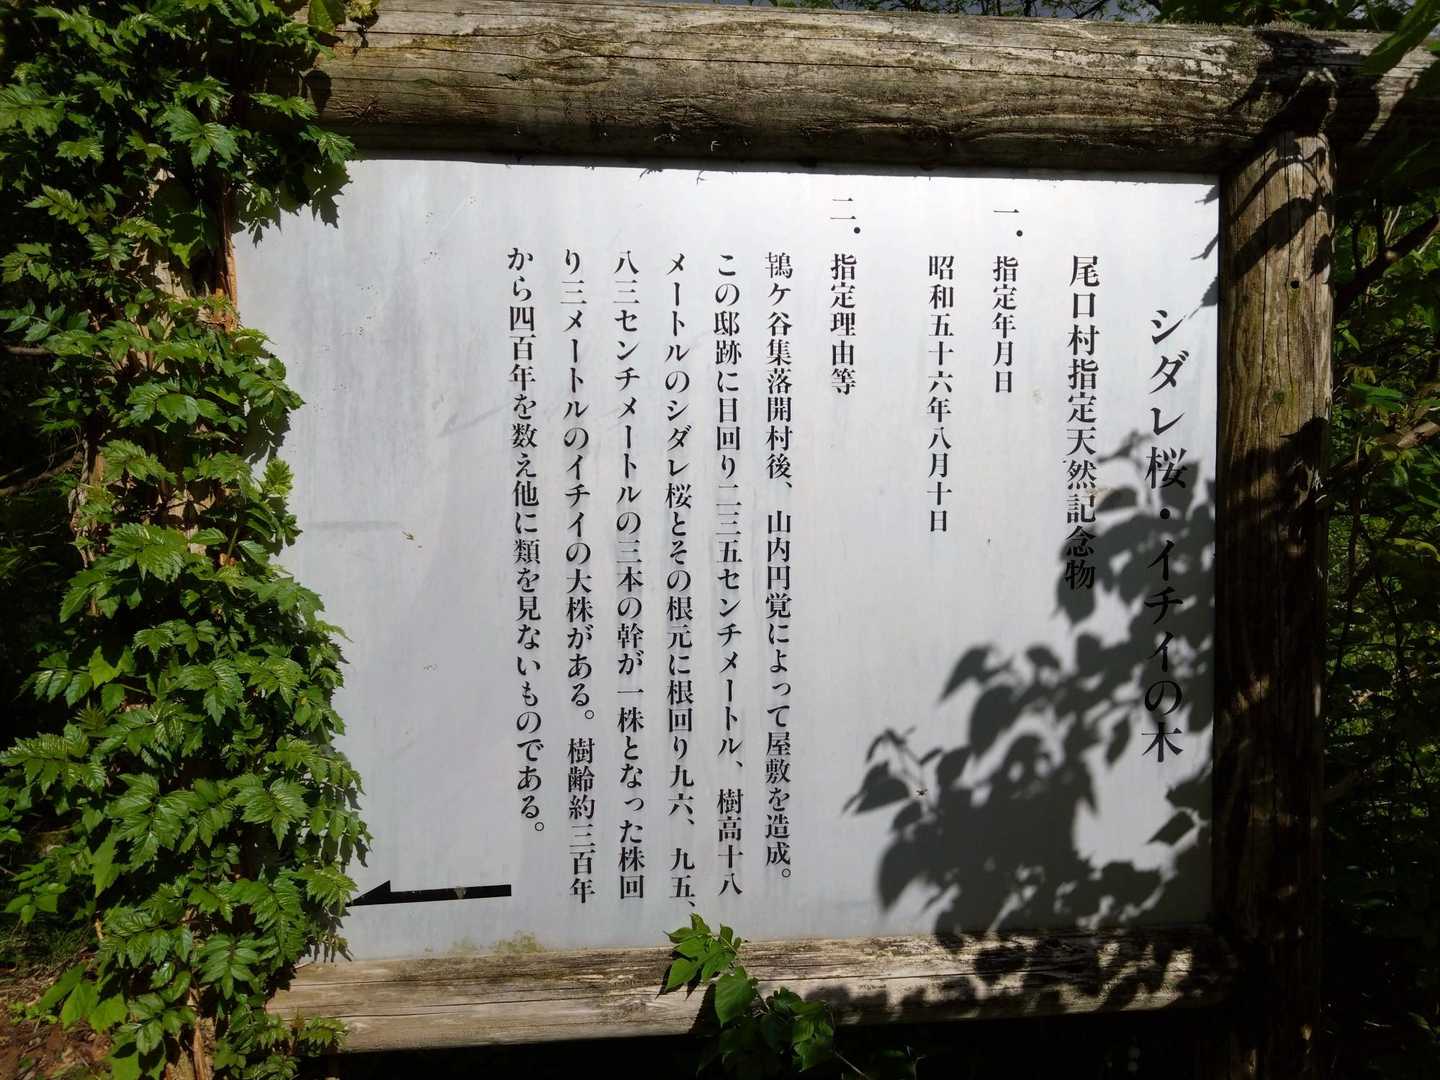 シダレ桜・イチイの木
尾口村指定天然記念物
一．指定年月日
昭和五十六年八月十日
二．指定理由等
鴇ケ谷集落開村後、山内円覚によって屋敷を造成。
この邸跡に目回り二三五センチメートル、樹高十八
メートルのシダレ桜とその根元に根回り九六、九五、
八三センチメートルの三本の幹が一株となった株回
り三メートルのイチイの大株がある。樹齢約三百年
から四百年を数え他に類を見ないものである。